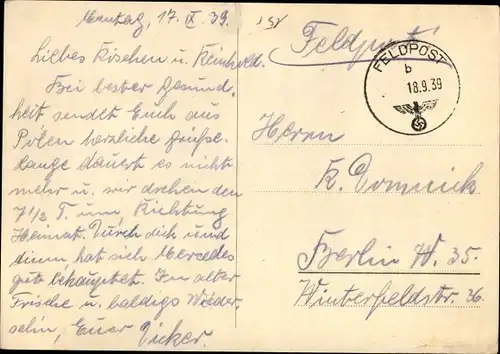 17. IX. 39.
Liebes Röschen u. Reinhold.
Bei bester Gesund-
heit sendet Euch aus
Polen herzliche Grüße.
Lange dauert es nicht
mehr u. wir drehen den
7 1/2 T. um, Richtung
Heimat. Durch dick und
dünn hat sich Mercedes
gut behauptet. In alter
Frische u. baldigs Wieder
sehn, Euer
Feldpost
FELDPOST
b
18.9.39
Herrn
K. Domnick
Berlin W. 35.
Winterfeldstr. 36